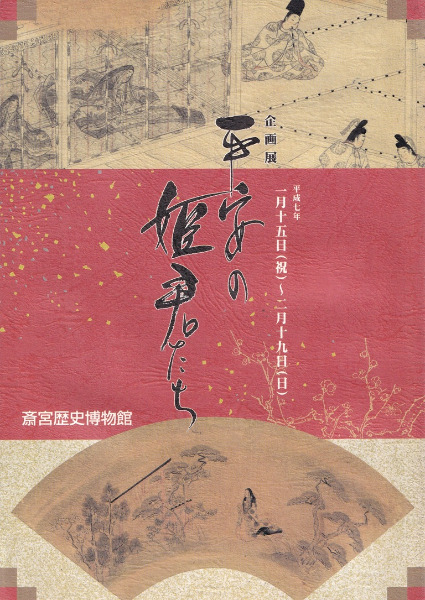 企画展
平安の
姫君たち
平成七年
一月十五日(祝)~二月十九日(日)
斎宮歴史博物館